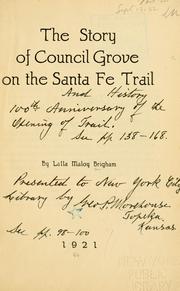 The Story
of Council Grove
on the Santa Fe Trail
And History
100th Anniversary of the
Opening of Trail.
See pp. 138-168.
By Lalla Maloy Brigham
Presented to New York City
Library by Geo. P. Morehouse
Topeka,
Kansas
See pp. 98-100
1921